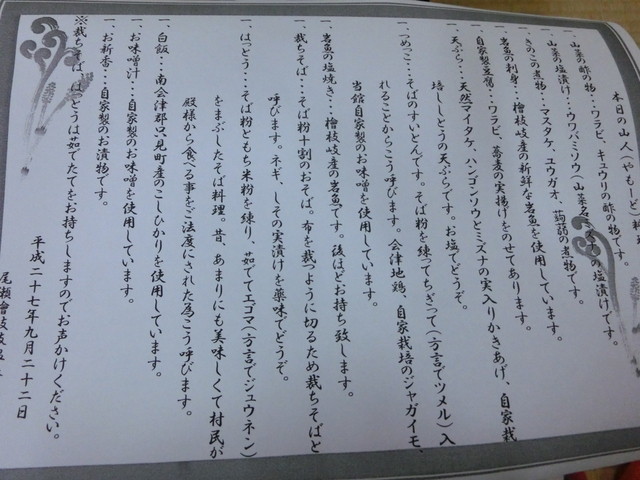 本日の山人(やもーど)料
一、山菜の酢の物…ワラビ、キュウリの酢の物です。
一、山菜の塩漬け…ウワバミソウ(山菜名 の塩漬けです。
一、きのこの煮物…マスタケ、ユウガオ、蒟蒻の煮物です。
一、岩魚の刺身…檜枝岐産の新鮮な岩魚を使用しています。
一、自家製豆腐…ワラビ、蕎麦の実揚げをのせてあります。
一、天ぷら…天然マイタケ、ハンゴンソウとミズナの実入りかきあげ、自家栽
培ししとうの天ぷらです。お塩でどうぞ。
一、つめっこ…そばのすいとんです。そば粉を練ってちぎって(方言でツメル)入
れることからこう呼びます。会津地鶏、自家栽培のジャガイモ、
当館自家製のお味噌を使用しています。
一、岩魚の塩焼き…檜枝岐産の岩魚です。後ほどお持ち致します。
一、裁ちそば…そば粉十割のおそば。布を裁つように切るため裁ちそばと
呼びます。ネギ、しその実漬けを薬味でどうぞ。
一、はっとう…そば粉ともち米粉を練り、茹でてエゴマ(方言でジュウネン)
をまぶしたそば料理。昔、あまりにも美味しくて村民が
殿様から食べる事をご法度にされた為こう呼びます。
一、白飯…南会津郡只見町産のこしひかりを使用しています。
一、お味噌汁…自家製のお味噌を使用しています。
一、お新香…自家製のお漬物です。
※裁ちそば、はっとうは茹でたてをお持ちしますのでお声かけください。
平成二十七年九月二十二日
尾瀬檜枝岐温